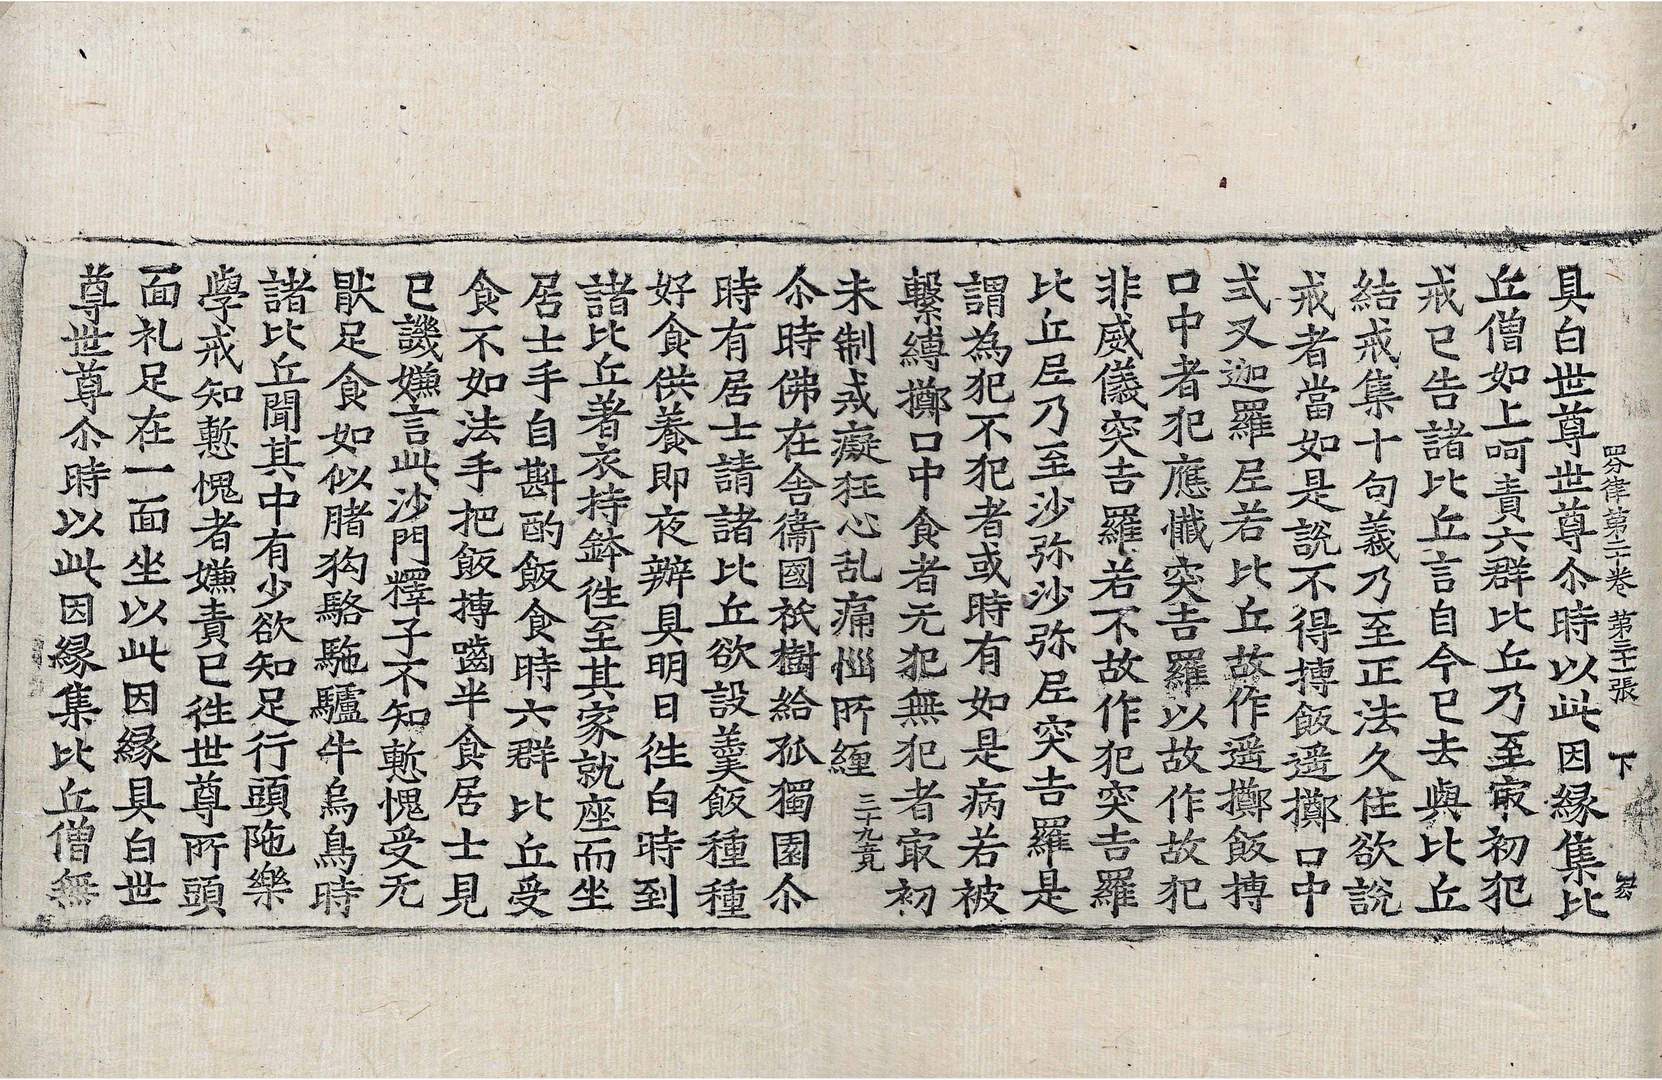 四分律第二十卷 第二十張 下
具白世尊世尊尒時以此因縁集比
丘僧如上呵責六群比丘乃至㝡初犯
戒已告諸比丘言自今已去與比丘
結戒集十句義乃至正法久住欲說
戒者當如是說不得摶飯遥擲口中
式叉迦羅尼若比丘故作遥擲飯摶
口中者犯應懺突吉羅以故作故犯
非威儀突吉羅若不故作犯突吉羅
比丘尼乃至沙弥沙弥尼突吉羅是
謂為犯不犯者或時有如是病若被
繫縛擲口中食者无犯無犯者㝡初
未制戒癡狂心乱痛惱所纏 三十九竟
尒時佛在舍衞國祇樹給孤獨園尒
時有居士請諸比丘欲設羹飯種種
好食供養即夜辦具明日徃白時到
諸比丘著衣持鉢徃至其家就座而坐
居士手自斟酌飯食時六群比丘受
食不如法手把飯摶嚙半食居士見
已譏嫌言此沙門釋子不知慙愧受无
猒足食如似賭狗駱駞驢牛烏鳥時
諸比丘聞其中有少欲知足行頭陁樂
學戒知慙愧者嫌責已徃世尊所頭
面礼足在一面坐以此因縁具白世
尊世尊尒時以此因縁集比丘僧無